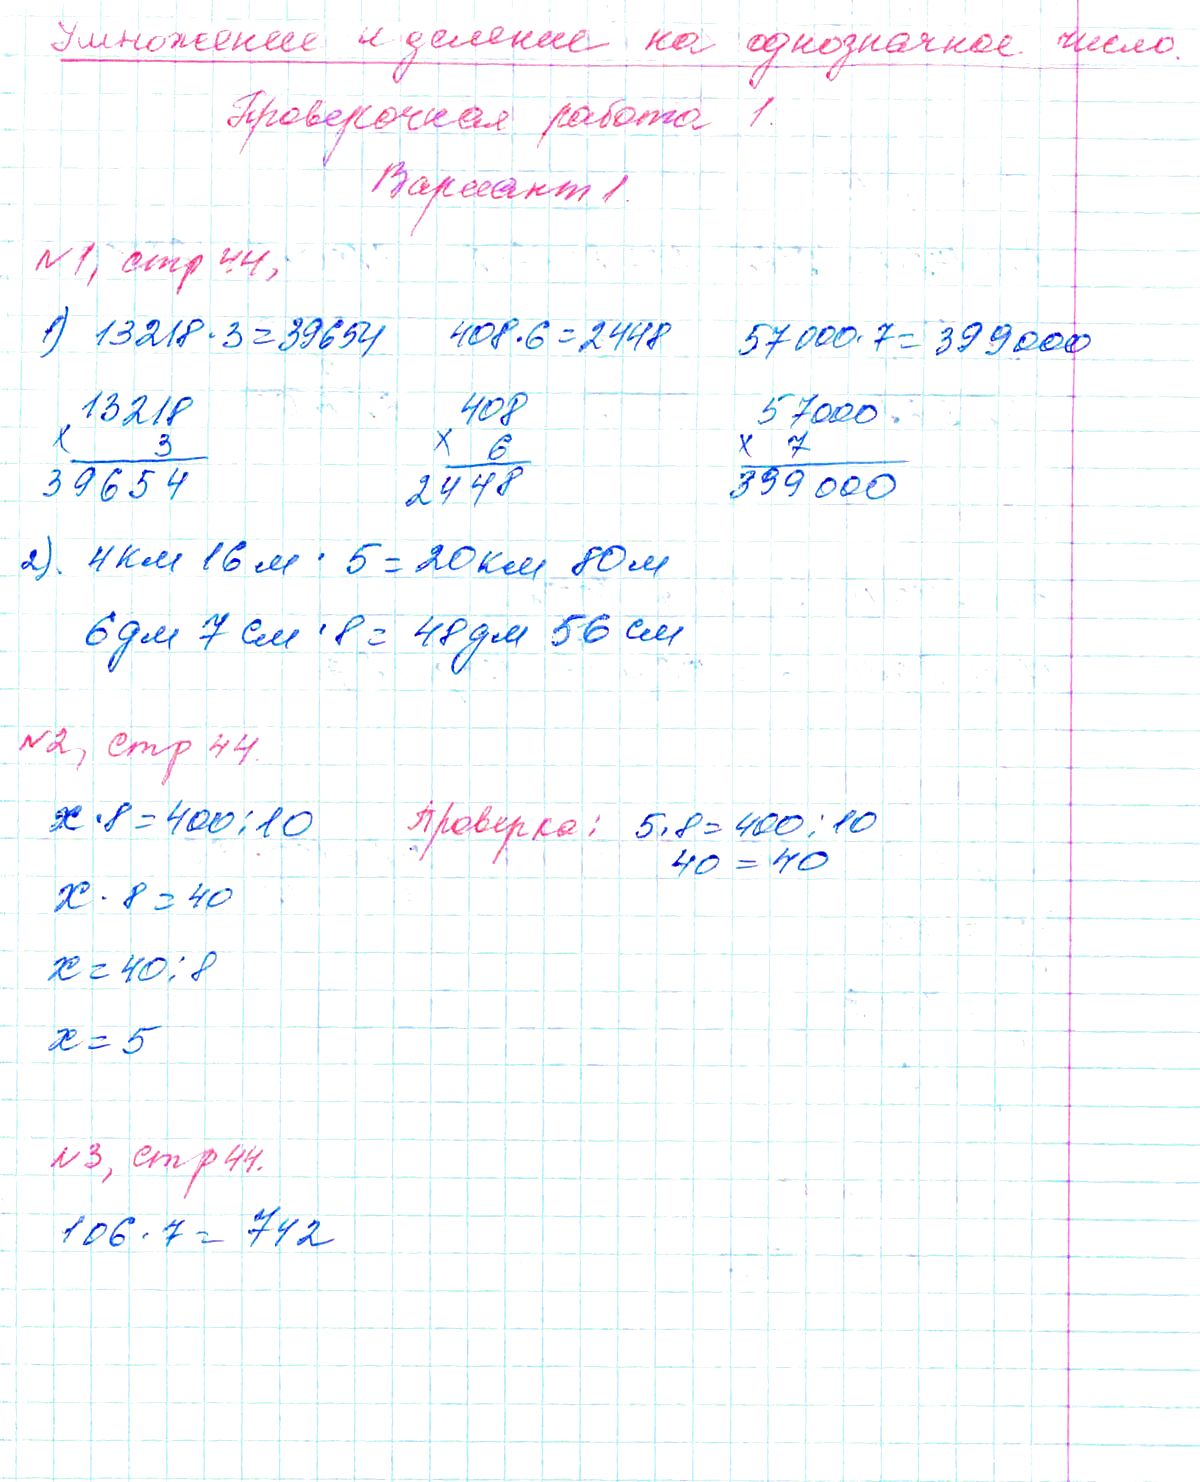 Умножение и деление на однозначное число.
Проверочная работа 1.
Вариант 1.
№1, стр 44,
1) 13218·3=39654 408·6=2448 57000·7=399000
13218 408 57000
× 3 × 6 × 7
39654 2448 399000
2). 4км 16м · 5=20км 80м
6дм 7см ·8= 48дм 56см
№2, стр 44.
x·8=400:10 Проверка: 5·8=400:10
40=40
x·8=40
x=40:8
x=5
№3, стр 44.
106·7= 742